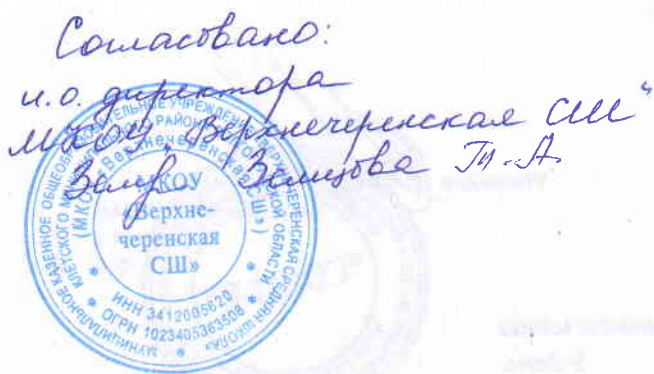 Согласовано:
и.о. директора
МКОУ „Верхнечеренская СШ"
Земцова Т.А.
МУНИЦИПАЛЬНОЕ КАЗЕННОЕ ОБЩЕОБРАЗОВАТЕЛЬНОЕ УЧРЕЖДЕНИЕ «ВЕРХНЕЧЕРЕНСКАЯ СРЕДНЯЯ ШКОЛА»
КЛЕТСКОГО МУНИЦИПАЛЬНОГО РАЙОНА ВОЛГОГРАДСКОЙ ОБЛАСТИ
(МКОУ «Верхнечеренская СШ»)
МКОУ
«Верхне-
черенская
СШ»
ИНН 3412005620
ОГРН 1023405363508